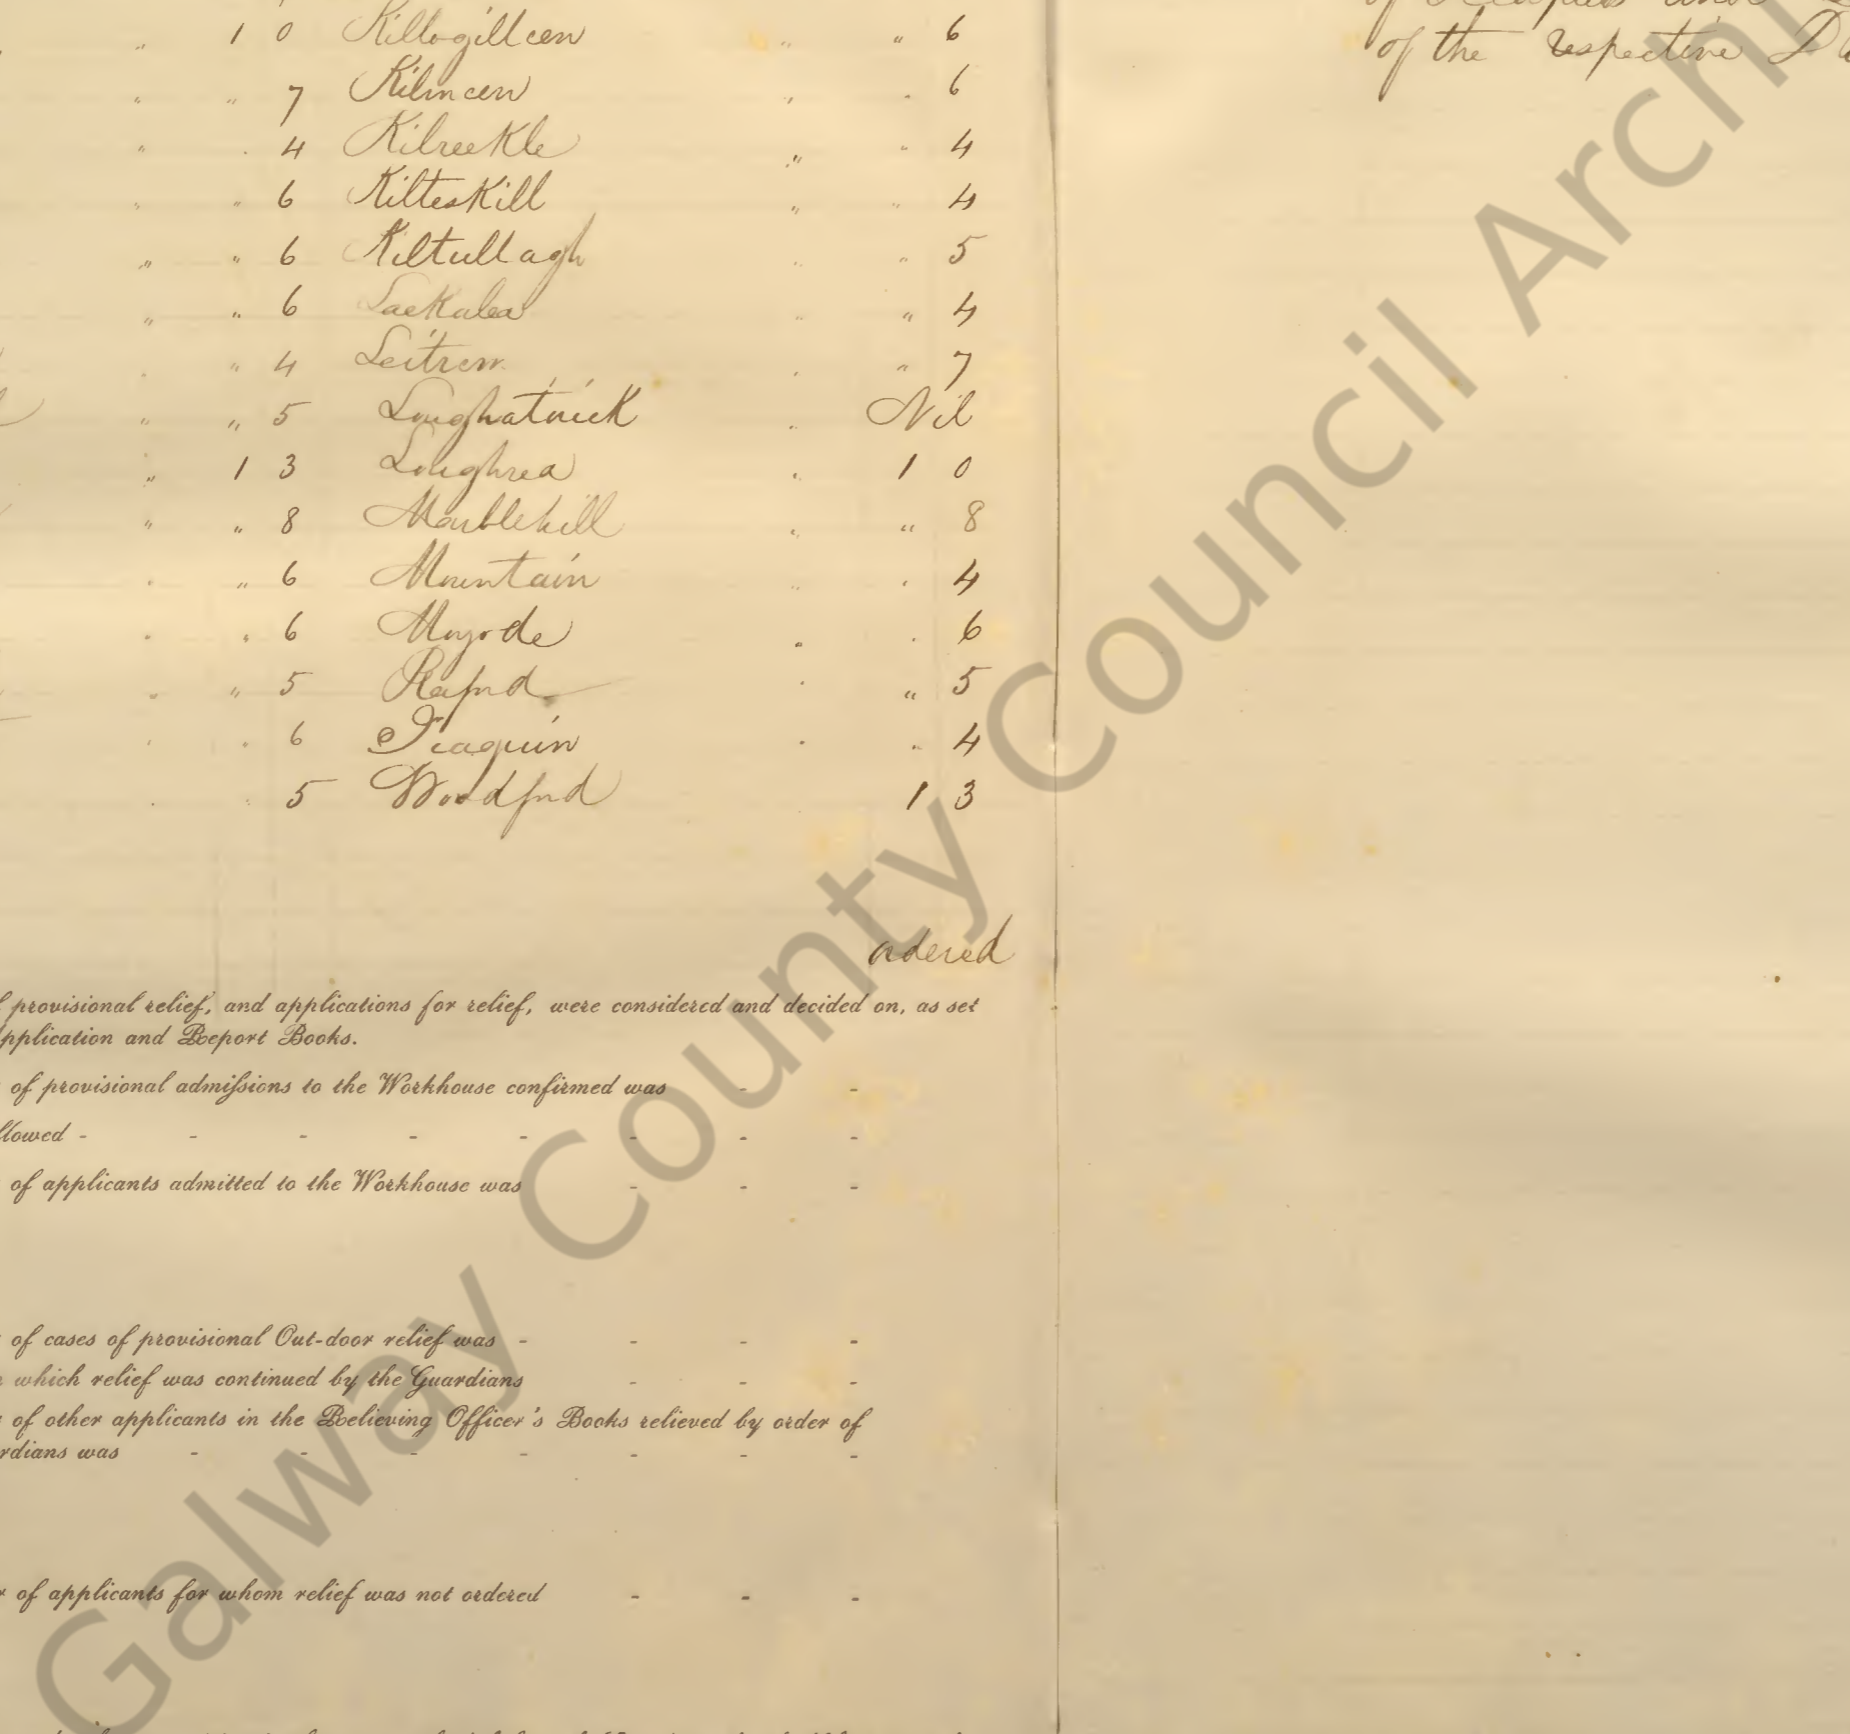 " 1 0 Killogilleen " " 6
" " 7 Kilmeen " " 6
" " 4 Kilreekle " " 4
" " 6 Kilteskill " " 4
" " 6 Kiltullagh " " 5
" " 6 Lackalea " " 4
" " 4 Leitrim " " 7
" " 5 Loughatorick " Nil
" 1 3 Loughrea " 1 0
" " 8 Marblehill " " 8
" " 6 Mountain " " 4
" " 6 Moyode " " 6
" " 5 Raford " " 5
" " 6 Tiaquin " " 4
" " 5 Woodford 1 3
ordered
of the respective
provisional relief, and applications for relief, were considered and decided on, as set
pplication and Report Books.
of provisional admissions to the Workhouse confirmed was - -
llowed - - - - - - - -
of applicants admitted to the Workhouse was - - -
of cases of provisional Out-door relief was - - - -
which relief was continued by the Guardians - - -
of other applicants in the Relieving Officer's Books relieved by order of
rdians was - - - - - - -
of applicants for whom relief was not ordered - - -
Galway County Council Archi